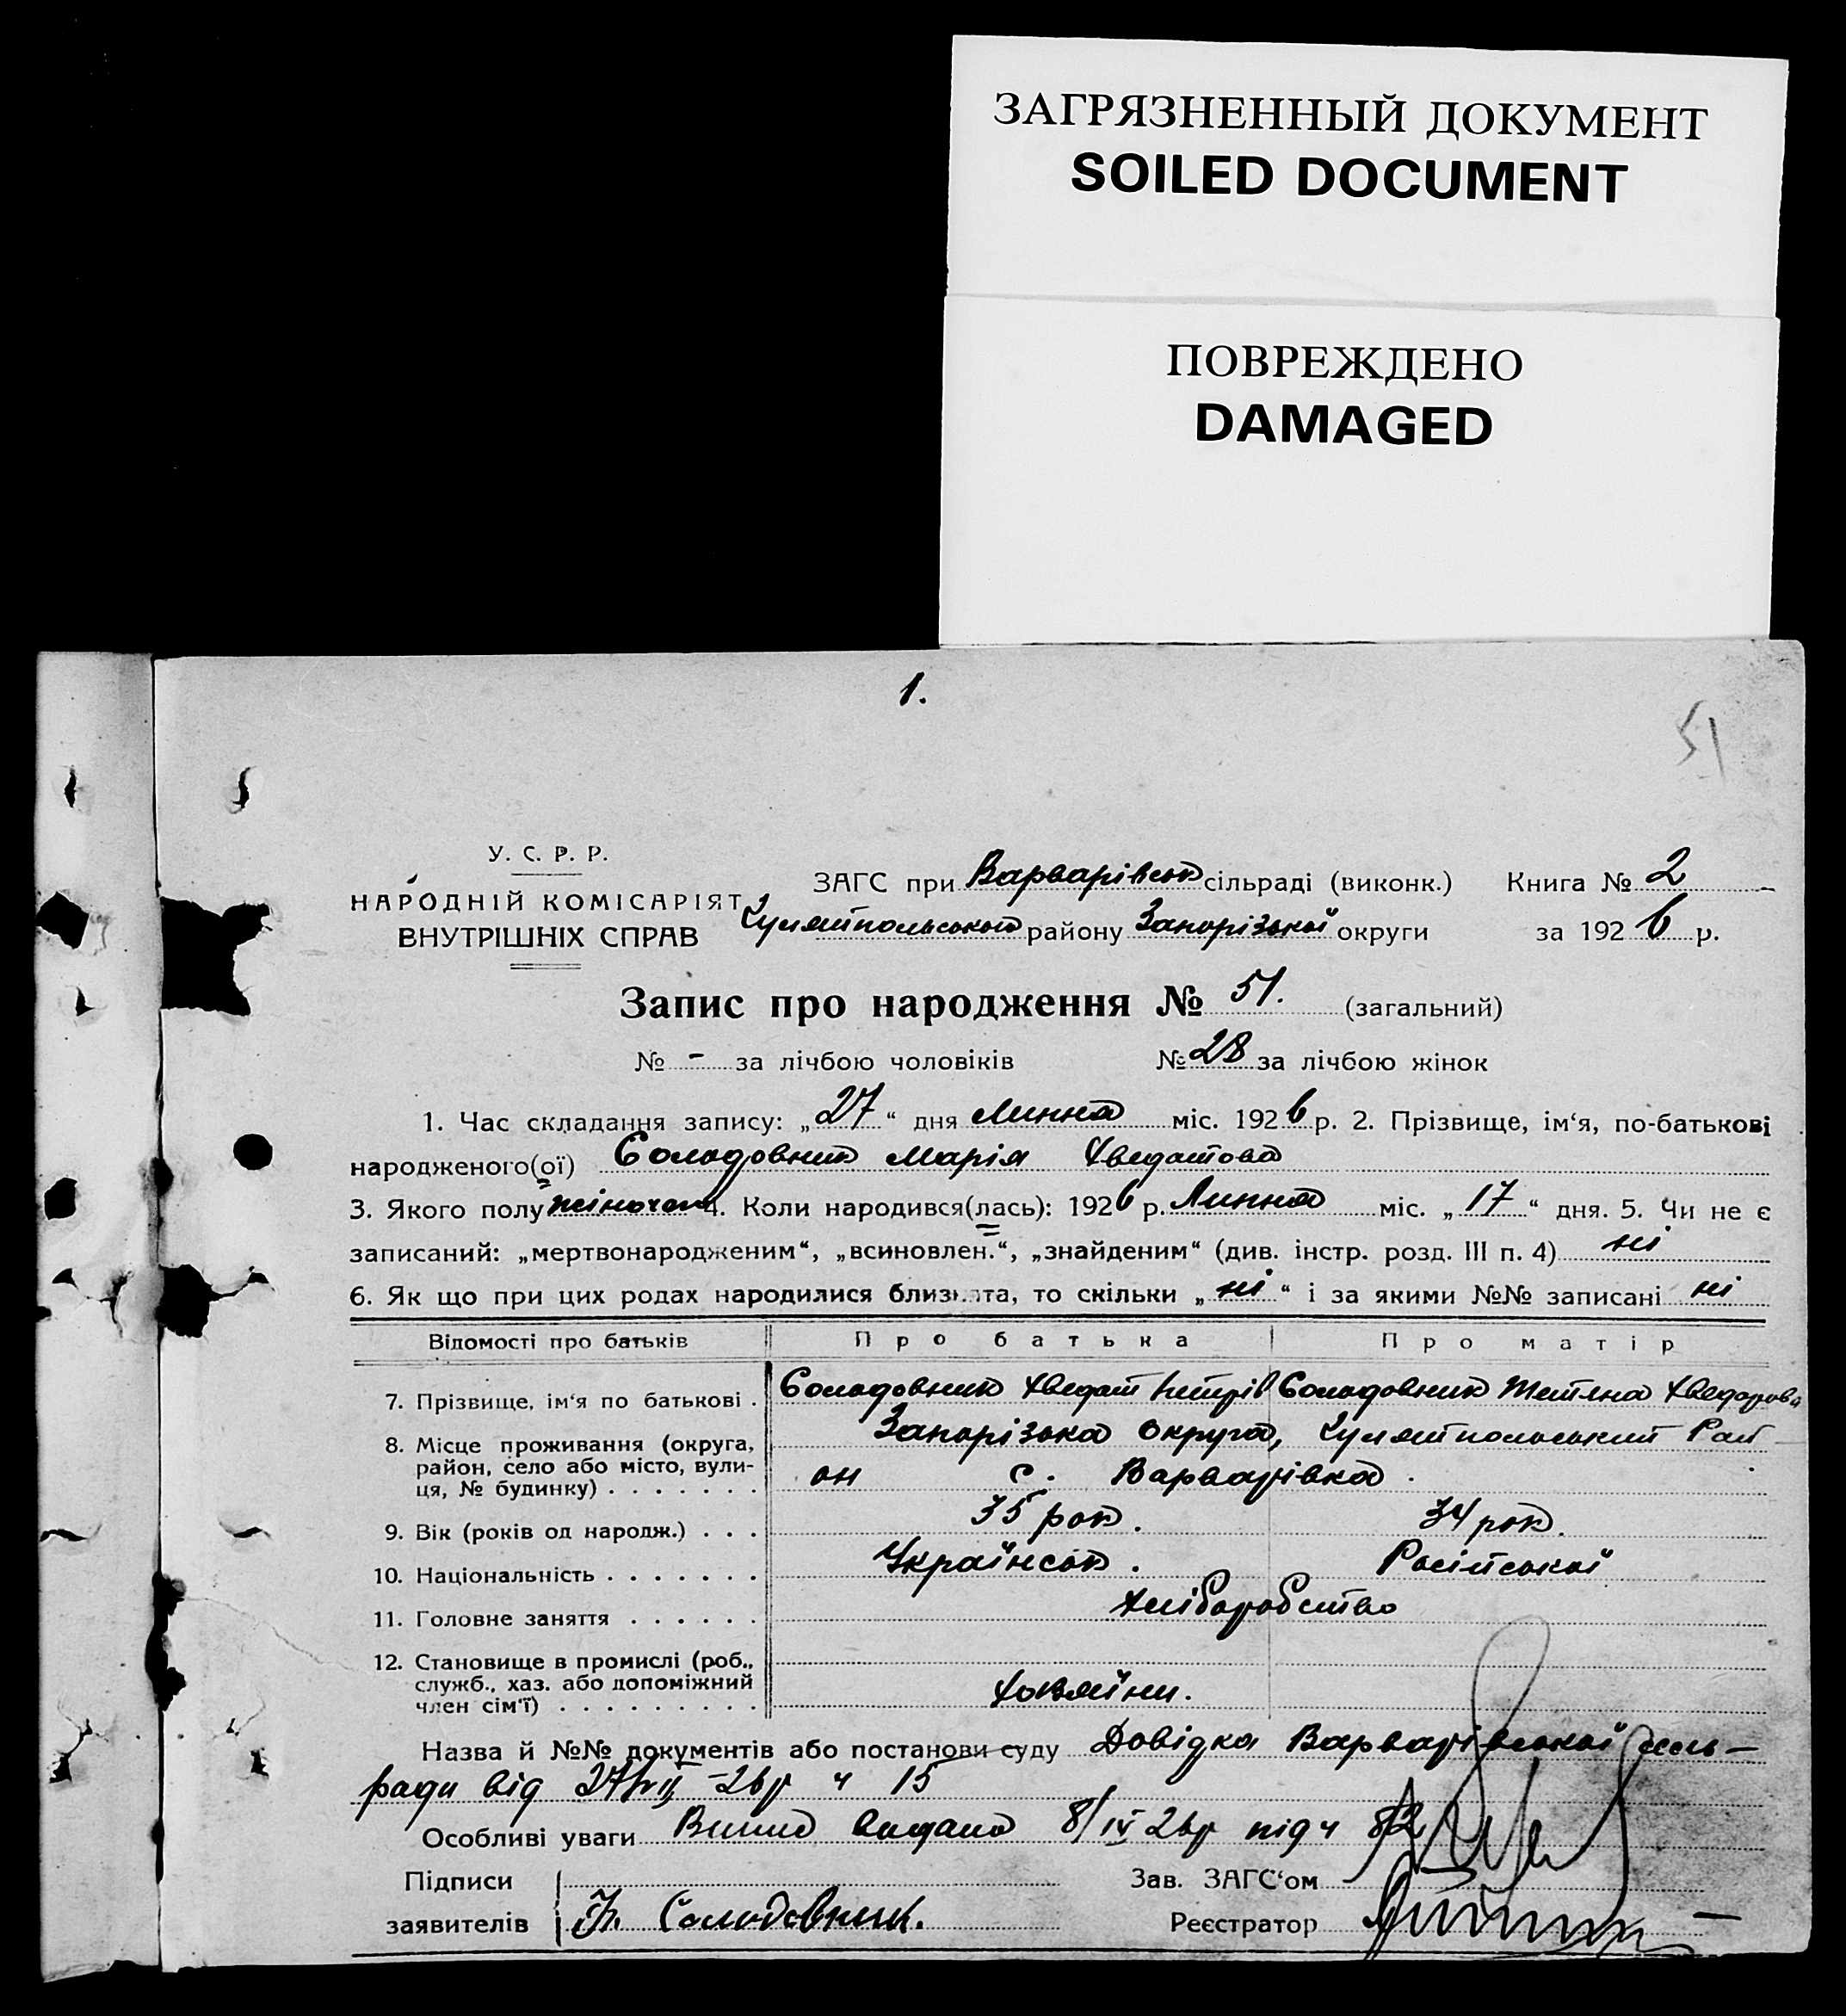 ЗАГРЯЗНЕННЫЙ ДОКУМЕНТ
SOILED DOCUMENT
ПОВРЕЖДЕНО
DAMAGED
1.
51
У. С. Р. Р.
НАРОДНІЙ КОМІСАРІЯТ
ВНУТРІШНІХ СПРАВ
ЗАГС при Варварівськ сільраді (виконк.) Книга № 2
Гуляйпольського району Запорізької округи за 1926 р.
Запис про народження № 51. (загальний)
№ - за лічбою чоловіків № 28 за лічбою жінок
1. Час складання запису: „27“ дня Липня міс. 1926 р. 2. Прізвище, ім‘я, по-батькові
народженого(ої) Солодовник Марія Хведотова
3. Якого полу жіночого 4. Коли народився(лась): 1926 р. Липня міс. „17“ дня. 5. Чи не є
записаний: „мертвонародженим“, „всиновлен.“, „знайденим“ (див. інстр. розд. III п. 4) ні
6. Як що при цих родах народилися близнята, то скільки „ні“ і за якими №№ записані ні
Відомості про батьків Про батька Про матір
7. Прізвище, ім‘я по батькові . Солодовник Хведот Петрів Солодовник Тетяна Хведорова
8. Місце проживання (округа, район, село або місто, вулиця, № будинку) . . . . . . . Запорізька округа, Гуляйпольський Рай
он с. Варварівка.
9. Вік (років од народж.) . . . 35 рок. 34 рок.
10. Національність . . . . . . . Українськ. Російської
11. Головне заняття . . . . . . Хліборобство
12. Становище в промислі (роб., служб., хаз. або допоміжний член сім‘ї) . . . . . . . . . Хазяїни.
Назва й №№ документів або постанови суду Довідка Варварівської сель-
ради від 27/VII-26р ч 15
Особливі уваги видано 8/IX 26р під ч 82
Підписи
заявителів Солодовник.
Зав. ЗАГС‘ом
Реєстратор